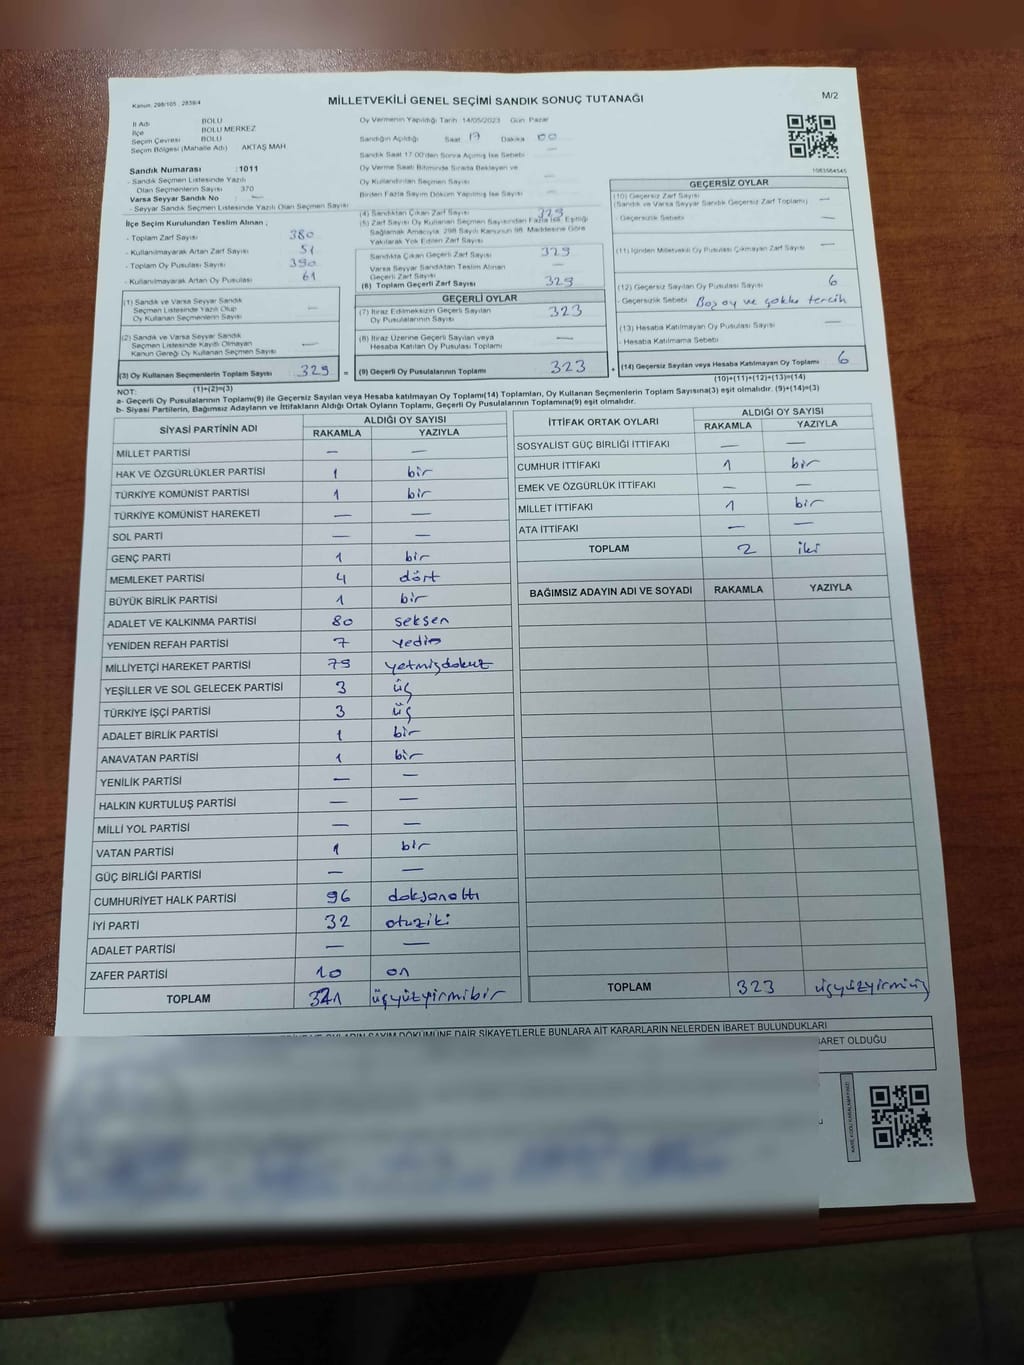 Kanun: 298/105 ; 2839/4
MİLLETVEKİLİ GENEL SEÇİMİ SANDIK SONUÇ TUTANAĞI
M/2
İl Adı BOLU
İlçe BOLU MERKEZ
Seçim Çevresi BOLU
Seçim Bölgesi (Mahalle Adı) AKTAŞ MAH
Sandık Numarası :1011
- Sandık Seçmen Listesinde Yazılı
Olan Seçmenlerin Sayısı 370
Varsa Seyyar Sandık No —
- Seyyar Sandık Seçmen Listesinde Yazılı Olan Seçmen Sayısı
İlçe Seçim Kurulundan Teslim Alınan ;
- Toplam Zarf Sayısı 380
- Kullanılmayarak Artan Zarf Sayısı 51
- Toplam Oy Pusulası Sayısı 390
- Kullanılmayarak Artan Oy Pusulası 61
(1) Sandık ve Varsa Seyyar Sandık
Seçmen Listesinde Yazılı Olup
Oy Kullanan Seçmen Sayısı —
(2) Sandık ve Varsa Seyyar Sandık
Seçmen Listesinde Kayıtlı Olmayan
Kanun Gereği Oy Kullanan Seçmen Sayısı —
(3) Oy Kullanan Seçmenlerin Toplam Sayısı 329 =
(1)+(2)=(3)
Oy Vermenin Yapıldığı Tarih: 14/05/2023 Gün: Pazar
Sandığın Açıldığı Saat 17 Dakika 00
Sandık Saat 17.00'den Sonra Açılmış İse Sebebi —
Oy Verme Saati Bitiminde Sırada Bekleyen ve
Oy Kullandırılan Seçmen Sayısı —
Birden Fazla Sayım Döküm Yapılmış İse Sayısı —
(4) Sandıktan Çıkan Zarf Sayısı 329
(5) Zarf Sayısı Oy Kullanan Seçmen Sayısından Fazla İse, Eşitliği
Sağlamak Amacıyla, 298 Sayılı Kanunun 98. Maddesine Göre
Yakılarak Yok Edilen Zarf Sayısı
Sandıkta Çıkan Geçerli Zarf Sayısı 329
Varsa Seyyar Sandıktan Teslim Alınan
Geçerli Zarf Sayısı —
(6) Toplam Geçerli Zarf Sayısı 329
GEÇERLİ OYLAR
(7) İtiraz Edilmeksizin Geçerli Sayılan
Oy Pusulalarının Sayısı 323
(8) İtiraz Üzerine Geçerli Sayılan veya
Hesaba Katılan Oy Pusulası Toplamı —
(9) Geçerli Oy Pusulalarının Toplamı 323 +
1083564545
GEÇERSİZ OYLAR
(10) Geçersiz Zarf Sayısı
(Sandık ve Varsa Seyyar Sandık Geçersiz Zarf Toplamı) —
- Geçersizlik Sebebi —
(11) İçinden Milletvekili Oy Pusulası Çıkmayan Zarf Sayısı —
(12) Geçersiz Sayılan Oy Pusulası Sayısı 6
- Geçersizlik Sebebi Boş oy ve çoklu tercih
(13) Hesaba Katılmayan Oy Pusulası Sayısı —
- Hesaba Katılmama Sebebi
(14) Geçersiz Sayılan veya Hesaba Katılmayan Oy Toplamı 6
(10)+(11)+(12)+(13)=(14)
NOT:
a- Geçerli Oy Pusulalarının Toplamı(9) ile Geçersiz Sayılan veya Hesaba katılmayan Oy Toplamı(14) Toplamları, Oy Kullanan Seçmenlerin Toplam Sayısına(3) eşit olmalıdır. (9)+(14)=(3)
b- Siyasi Partilerin, Bağımsız Adayların ve İttifakların Aldığı Ortak Oyların Toplamı, Geçerli Oy Pusulalarının Toplamına(9) eşit olmalıdır.
SİYASİ PARTİNİN ADI ALDIĞI OY SAYISI
RAKAMLA YAZIYLA
MİLLET PARTİSİ — —
HAK VE ÖZGÜRLÜKLER PARTİSİ 1 bir
TÜRKİYE KOMÜNİST PARTİSİ 1 bir
TÜRKİYE KOMÜNİST HAREKETİ — —
SOL PARTİ — —
GENÇ PARTİ 1 bir
MEMLEKET PARTİSİ 4 dört
BÜYÜK BİRLİK PARTİSİ 1 bir
ADALET VE KALKINMA PARTİSİ 80 seksen
YENİDEN REFAH PARTİSİ 7 yedi
MİLLİYETÇİ HAREKET PARTİSİ 79 yetmişdokuz
YEŞİLLER VE SOL GELECEK PARTİSİ 3 üç
TÜRKİYE İŞÇİ PARTİSİ 3 üç
ADALET BİRLİK PARTİSİ 1 bir
ANAVATAN PARTİSİ 1 bir
YENİLİK PARTİSİ — —
HALKIN KURTULUŞ PARTİSİ — —
MİLLİ YOL PARTİSİ — —
VATAN PARTİSİ 1 bir
GÜÇ BİRLİĞİ PARTİSİ — —
CUMHURİYET HALK PARTİSİ 96 doksanaltı
İYİ PARTİ 32 otuziki
ADALET PARTİSİ — —
ZAFER PARTİSİ 10 on
TOPLAM 321 üçyüzyirmibir
İTTİFAK ORTAK OYLARI ALDIĞI OY SAYISI
RAKAMLA YAZIYLA
SOSYALİST GÜÇ BİRLİĞİ İTTİFAKI — —
CUMHUR İTTİFAKI 1 bir
EMEK VE ÖZGÜRLÜK İTTİFAKI — —
MİLLET İTTİFAKI 1 bir
ATA İTTİFAKI — —
TOPLAM 2 iki
BAĞIMSIZ ADAYIN ADI VE SOYADI RAKAMLA YAZIYLA
TOPLAM 323 üçyüzyirmiüç
OYLARIN SAYIM DÖKÜMÜNE DAİR ŞİKAYETLERLE BUNLARA AİT KARARLARIN NELERDEN İBARET BULUNDUKLARI
BARET OLDUĞU
KARE KODU KARALAMAYINIZ!